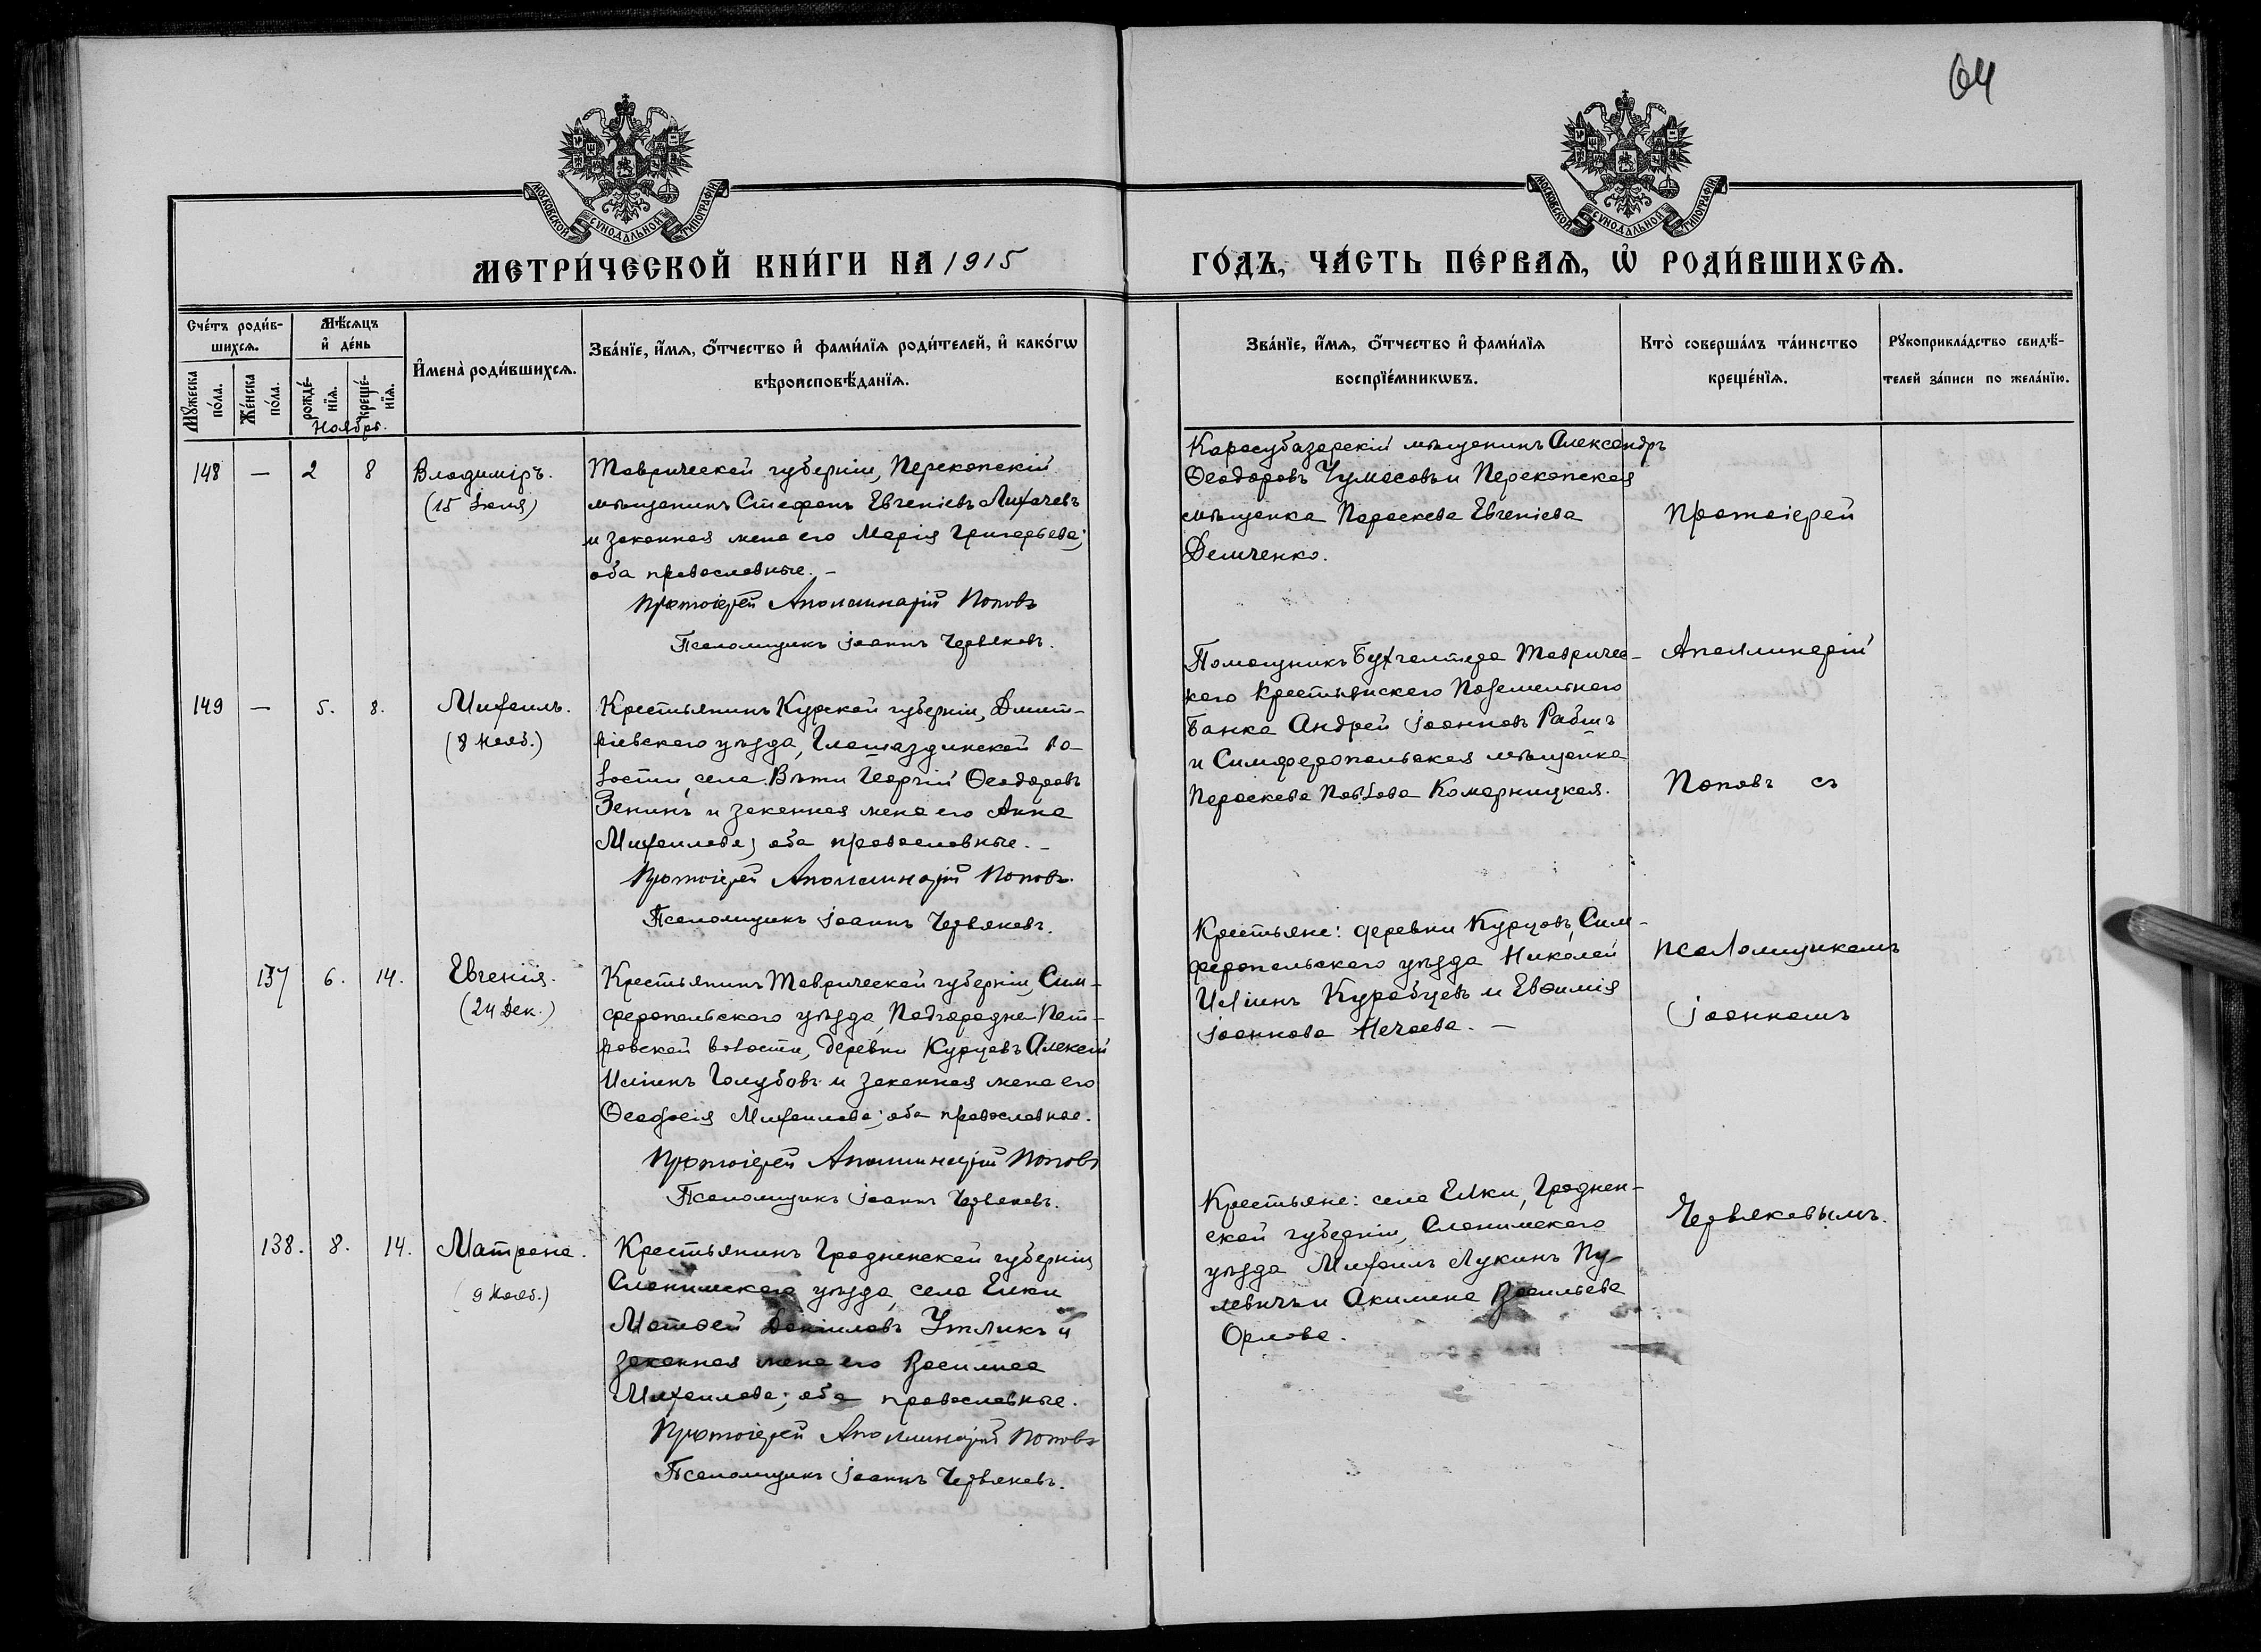 64
МОСКОВСКОЙ СѴНОДАЛЬНОЙ ТИПОГРАФІИ
МОСКОВСКОЙ СѴНОДАЛЬНОЙ ТИПОГРАФІИ
МЕТРИ́ЧЕСКОЙ КНИ́ГИ НА 1915
ГО́ДЪ, ЧА́СТЬ ПЕ́РВАѦ, Ѡ҆ РОДИ́ВШИХСѦ.
Сче́тъ роди́в-
шихсѧ.
Мѣ́сѧцъ
и҆ де́нь
Мꙋ́жеска
по́ла.
Же́нска
по́ла.
рожде́-
нїѧ.
креще́-
нїѧ.
Ноябрь.
И҆мена̀ роди́вшихсѧ.
Зва́нїе, и҆́мѧ, ѻ҆́тчество и҆ фами́лїѧ роди́телей, и҆ како́гѡ
вѣроисповѣ́данїѧ.
Зва́нїе, и҆́мѧ, ѻ҆́тчество и҆ фами́лїѧ
воспрїе́мникѡвъ.
Кто̀ соверша́лъ та́инство
креще́нїѧ.
Рꙋкоприкла́дство свидѣ́-
телей за́писи по жела́нїю.
148 — 2 8
Владиміръ.
(15 Іюля)
Таврической губерніи, Перекопскій
мѣщанинъ Стефанъ Евгеніевъ Лихачевъ
и законная жена его Марія Григорьева;
оба православные. —
Протоіерей Аполлинарій Поповъ
Псаломщикъ Іоаннъ Червяковъ.
Карасубазарскій мѣщанинъ Александръ
Ѳеодоровъ Чумасовъ и Перекопская
мѣщанка Параскева Евгеніева
Демченко.
149 — 5. 8.
Михаилъ.
(8 Нояб.)
Крестьянинъ Курской губерніи, Дмит-
ріевскаго уѣзда, Гламаздинской во-
лости, села Вѣти Георгій Ѳеодоровъ
Зенинъ и законная жена его Анна
Михаилова; оба православные. —
Протоіерей Аполлинарій Поповъ.
Псаломщикъ Іоаннъ Червяковъ.
Помощникъ Бухгалтера Тавричес-
каго Крестьянскаго Поземельнаго
Банка Андрей Іоанновъ Рабишъ
и Симферопольская мѣщанка
Параскева Павлова Комарницкая.
137 6. 14.
Евгенія.
(24 Дек.)
Крестьянинъ Таврической губерніи, Сим-
феропольскаго уѣзда, Подгородне-Пет-
ровской волости, деревни Курцовъ Алексій
Иліинъ Голубовъ и законная жена его
Ѳеодосія Михаилова; оба православные.
Протоіерей Аполлинарій Поповъ
Псаломщикъ Іоаннъ Червяковъ.
Крестьяне: деревни Курцовъ, Сим-
феропольскаго уѣзда Николай
Иліинъ Курабцевъ и Евѳимія
Іоаннова Нечаева. —
138. 8. 14.
Матрона.
(9 Нояб.)
Крестьянинъ Гродненской губерніи
Слонимскаго уѣзда, села Елки
Матѳей Даніиловъ Утликъ и
законная жена его Васимса
Михаилова; оба православные.
Протоіерей Аполлинарій Поповъ
Псаломщикъ Іоаннъ Червяковъ.
Крестьяне: села Елки, Гроднен-
ской губерніи, Слонимскаго
уѣзда Михаилъ Лукинъ Пу-
левичъ и Акилина Васильева
Орлова.
Протоіерей
Аполлинарій
Поповъ съ
псаломщикомъ
Іоанномъ
Червяковымъ.